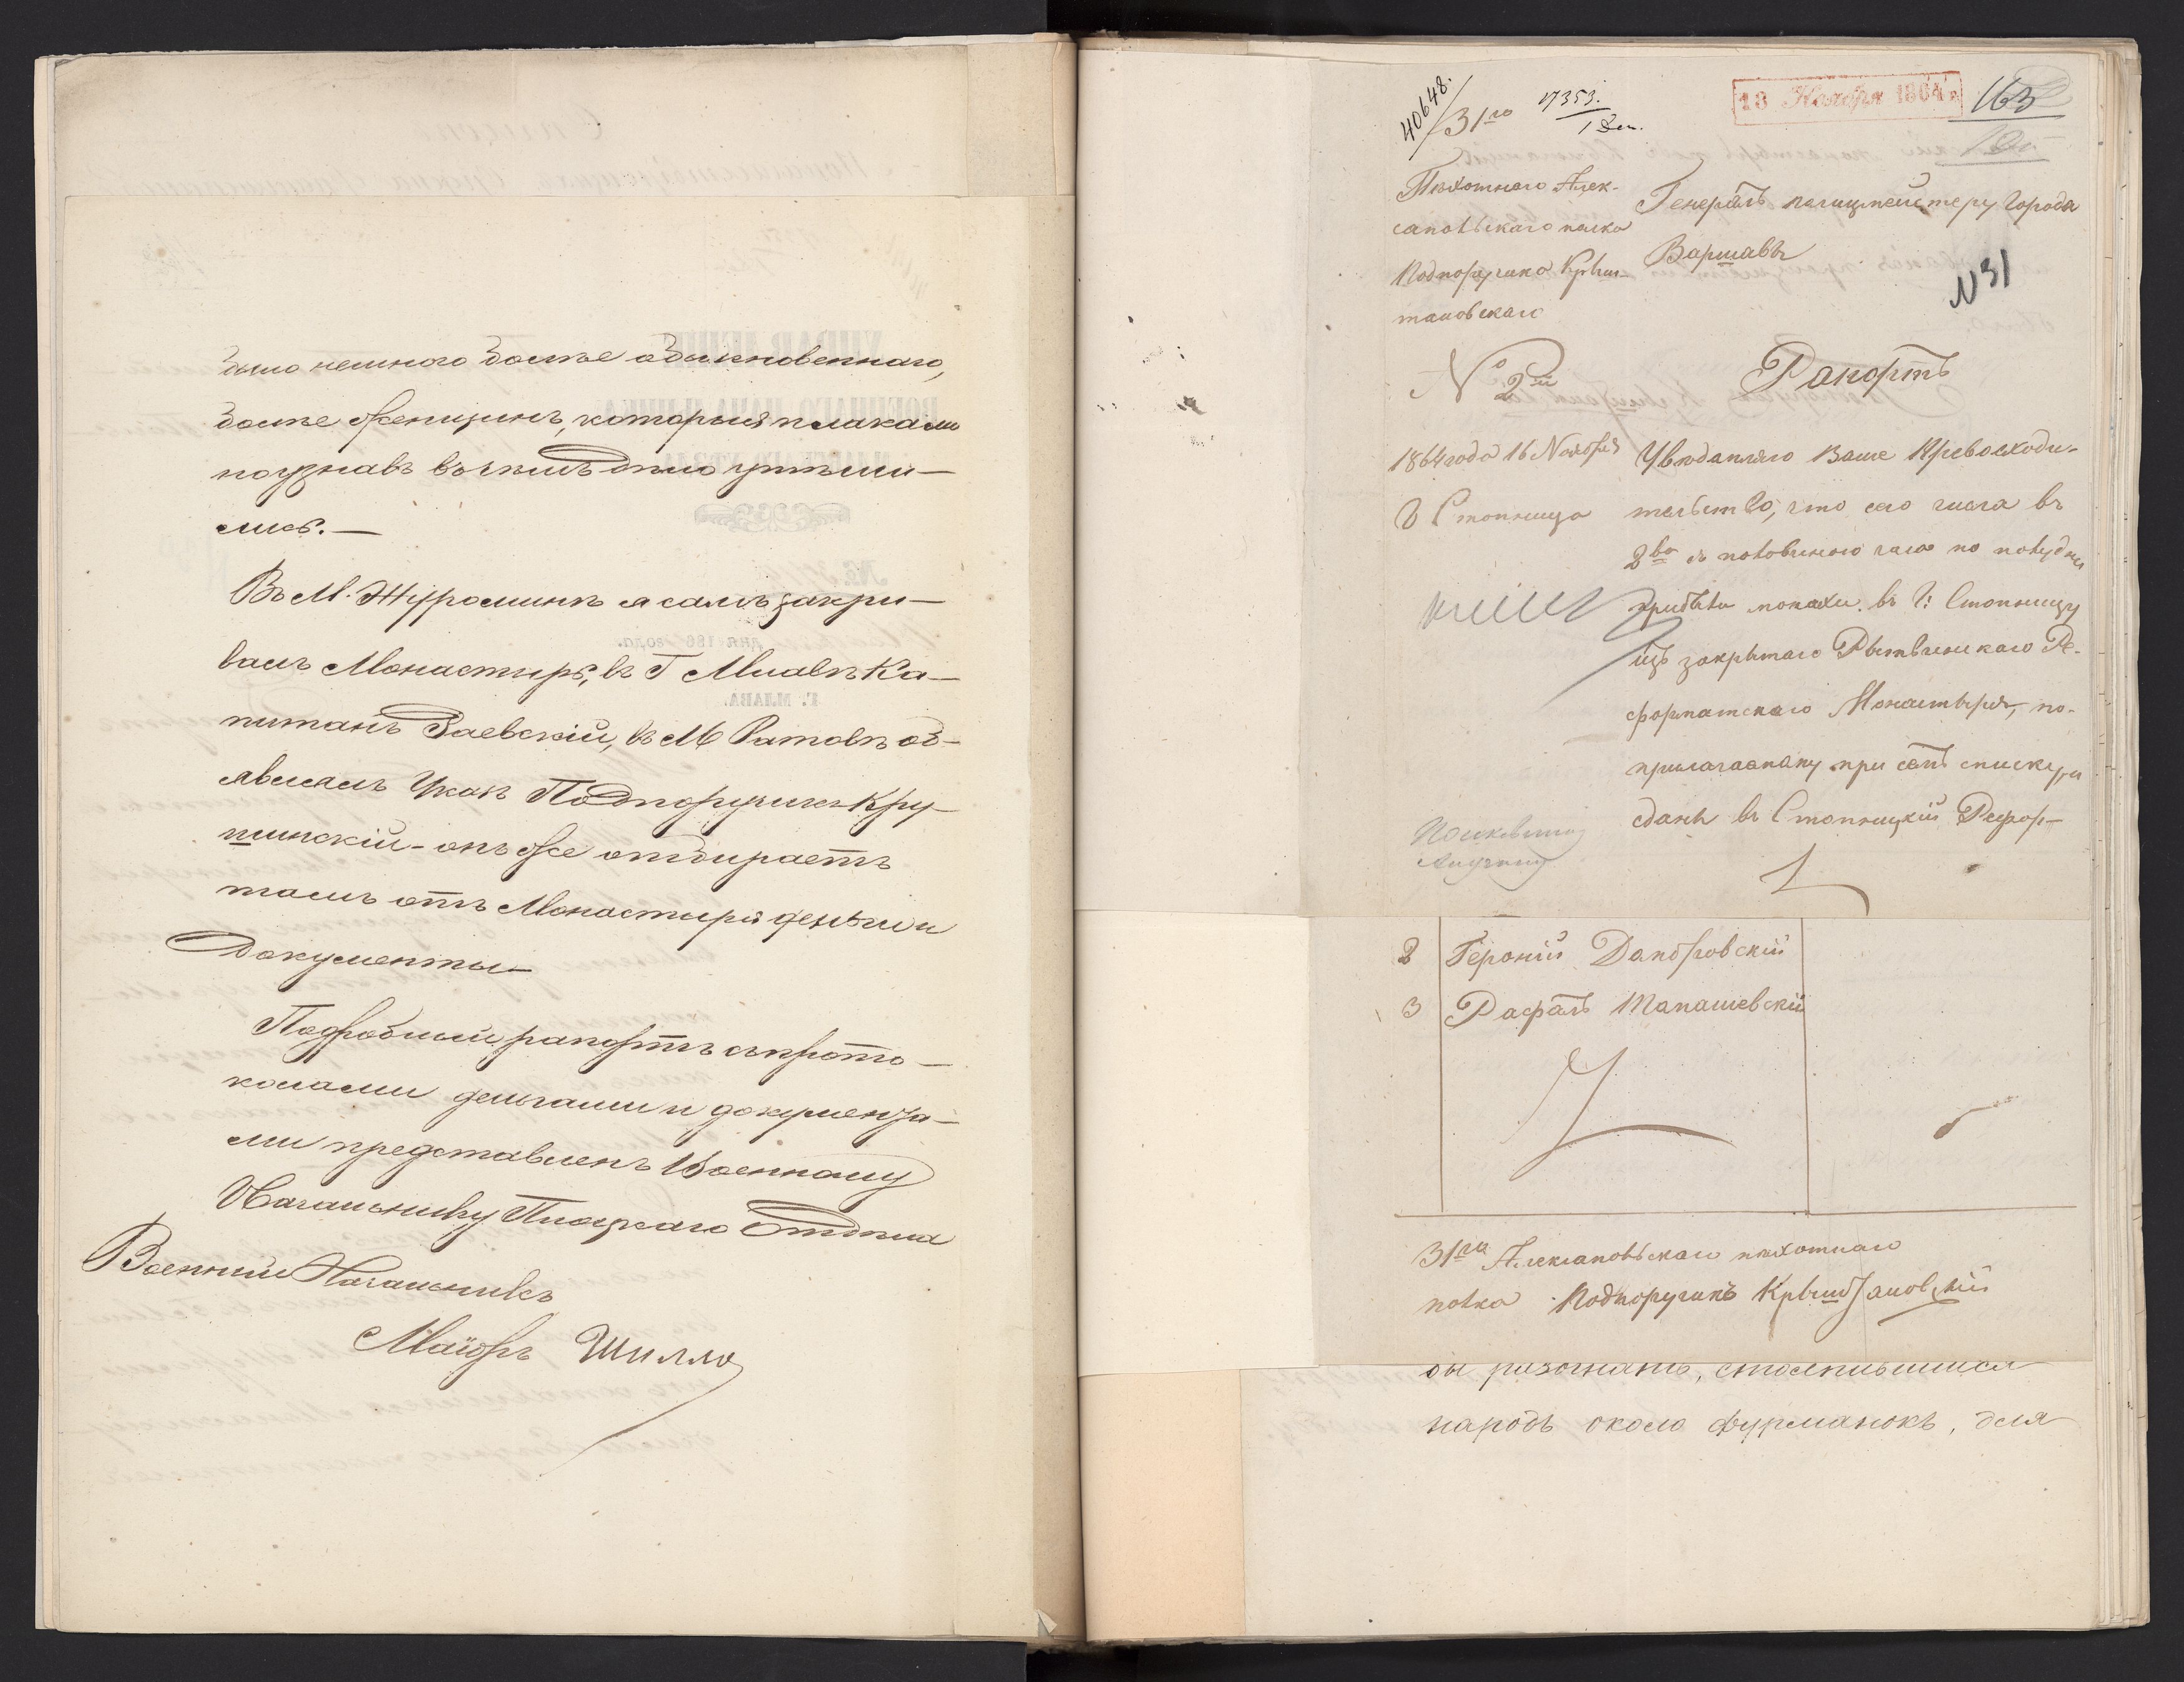 было немного более обыкновеннаго,
более женщинъ, которыя плакали
но узнавъ въ чемъ дело утеши-
лись. —
Въ М. Журоминѣ я самъ закры-
валъ Монастырь, въ Г Млавѣ Ка-
питанъ Заевскій, въ М Ратовѣ об-
являлъ Указъ Подпоручикъ Кру-
пинскій - онъ же отбираетъ
тамъ отъ Монастыря деньги и
документы —
Подробный рапортъ съ прото-
колами деньгами и документа-
ми представленъ Военному
Начальнику Плоцкаго Отдѣла
Военный Начальникъ
Маіоръ Шилло
40648.
31го
17353.
18 Ноября 1864 г.
163
Пѣхотнаго Алек-
сапольскаго полка
Подпоручика Крыш-
тановскаго
Генералъ полицмейстеру города
Варшавы
N 31
№ 2й
Рапортъ
1864 года 16 Ноября
Г Стопница
Увѣдомляю Ваше Превосходи-
тельство, что сего числа въ
2во съ половиною часа по полудни
прибыли монахи въ Г: Стопницу
изъ закрытаго Рытвянскаго Ре-
форматскаго Монастыря, по
прилагаемому при семъ списку, и
сданы въ Стопницкій Рефор-
2 Героній Домбровскій
3 Рафалъ Манашевскій
31го Алексапольскаго пѣхотнаго
полка Подпоручикъ Крыштановскій
бы разогнать, столпившійся
народъ около фурманокъ, для